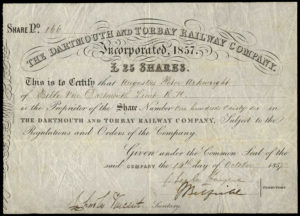 SHARE No. 166
THE DARTMOUTH AND TORBAY RAILWAY COMPANY.
Incorporated, 1857.
£25 SHARES.
This is to Certify that Augustus Peter Arkwright
of Dartmouth R.N.
is the Proprietor of the Share Number One hundred sixty six in
THE DARTMOUTH AND TORBAY RAILWAY COMPANY, Subject to the
Regulations and Orders of the Company.
Given under the Common Seal of the
said COMPANY the day of October 185
Charles
Secretary